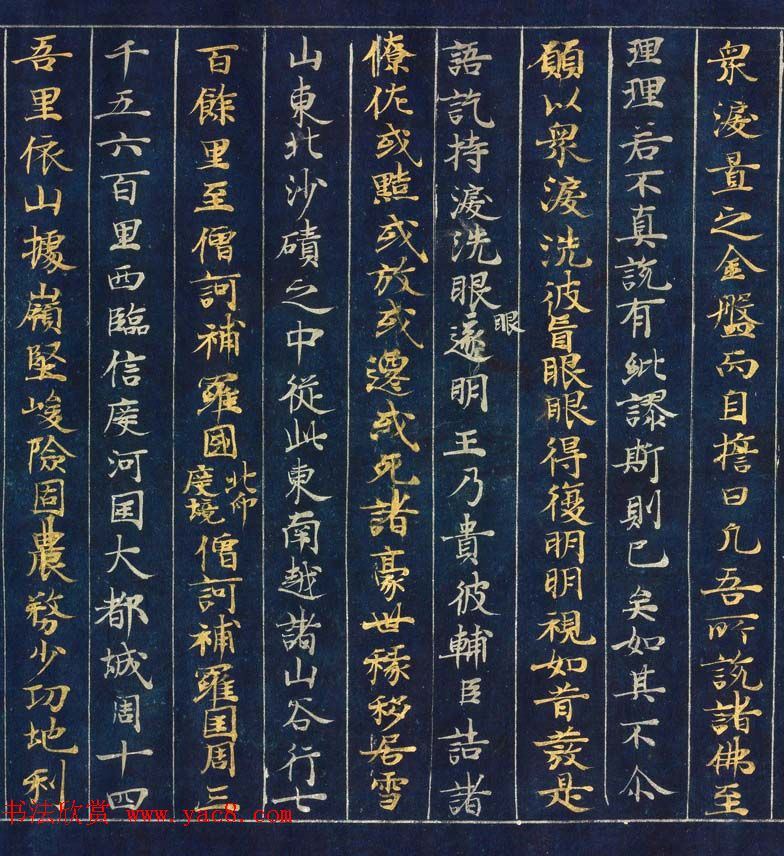 衆淚置之金盤而自擔曰凡吾所說諸佛至
理理若不真說有紕謬斯則已矣如其不尒
願以衆淚洗彼盲眼眼得復明明視如昔發是
語訖持淚洗眼眼遂明王乃貴彼輔臣詰諸
僚佐或黜或放或遷或死諸豪世稼移居雪
山東北沙磧之中從此東南越諸山谷行七
百餘里至僧訶補羅國北印度境僧訶補羅囯周三
千五六百里西臨信度河囯大都城周十四
吾里依山據嶺堅峻險固農務少功地利
书法欣赏 www.yac8.com